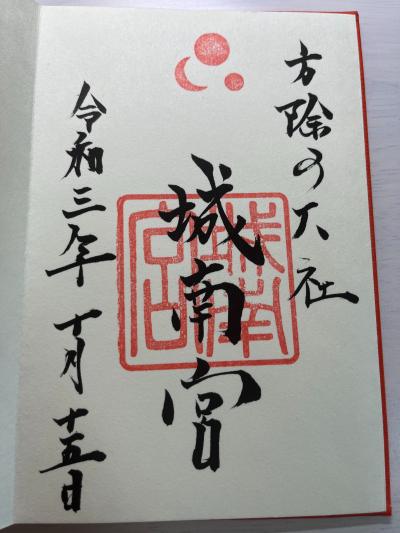 方除の大社
城南宮
城南宮
令和三年十月十五日